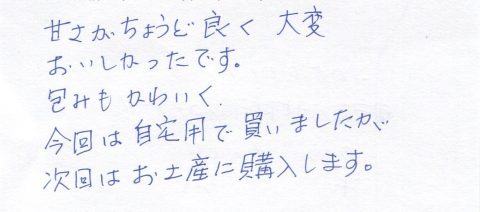 甘さがちょうど良く 大変
おいしかったです。
包みもかわいく.
今回は自宅用で買いましたが
次回はお土産に購入します。